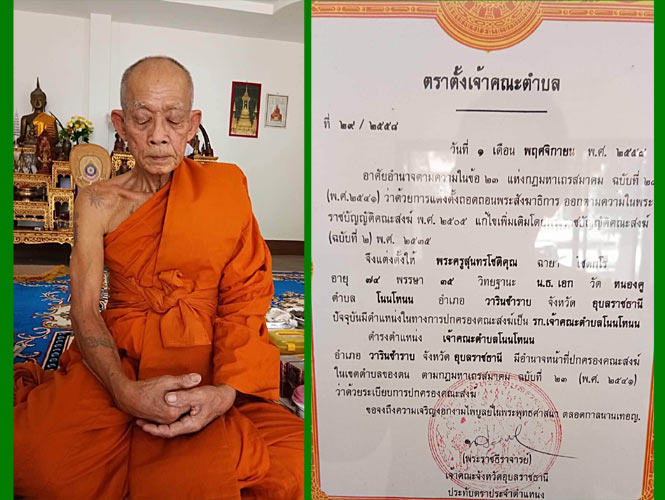 ตราตั้งเจ้าคณะตำบล
ที่ ๒๙ / ๒๕๕๘
วันที่ ๑ เดือน พฤศจิกายน พ.ศ. ๒๕๕๘
อาศัยอำนาจตามความในข้อ ๒๓ แห่งกฎมหาเถรสมาคม ฉบับที่
(พ.ศ.๒๕๔๑) ว่าด้วยการแต่งตั้งถอดถอนพระสังฆาธิการ ออกตามความในพระ
ราชบัญญัติคณะสงฆ์ พ.ศ. ๒๕๐๕ แก้ไขเพิ่มเติมโดยพระราชบัญญัติคณะสงฆ์
(ฉบับที่ ๒) พ.ศ. ๒๕๓๕
จึงแต่งตั้งให้ พระครูสุนทรโชติคุณ ฉายา โชตกโร
อายุ ๗๔ พรรษา ๓๕ วิทยฐานะ น.ธ. เอก วัด หนองคู
ตำบล โนนโหนน อำเภอ วารินชำราบ จังหวัด อุบลราชธานี
ปัจจุบันมีตำแหน่งในทางการปกครองคณะสงฆ์เป็น รก.เจ้าคณะตำบลโนนโหนน
ดำรงตำแหน่ง เจ้าคณะตำบลโนนโหนน
อำเภอ วารินชำราบ จังหวัด อุบลราชธานี มีอำนาจหน้าที่ปกครองคณะสงฆ์
ในเขตตำบลของตน ตามกฎมหาเถรสมาคม ฉบับที่ ๒๓ (พ.ศ. ๒๕๔๑)
ว่าด้วยระเบียบการปกครองคณะสงฆ์
ขอจงถึงความเจริญงอกงามไพบูลย์ในพระพุทธศาสนา ตลอดกาลนานเทอญ.
(พระราชธีราจารย์)
เจ้าคณะจังหวัดอุบลราชธานี
ประทับตราประจำตำแหน่ง